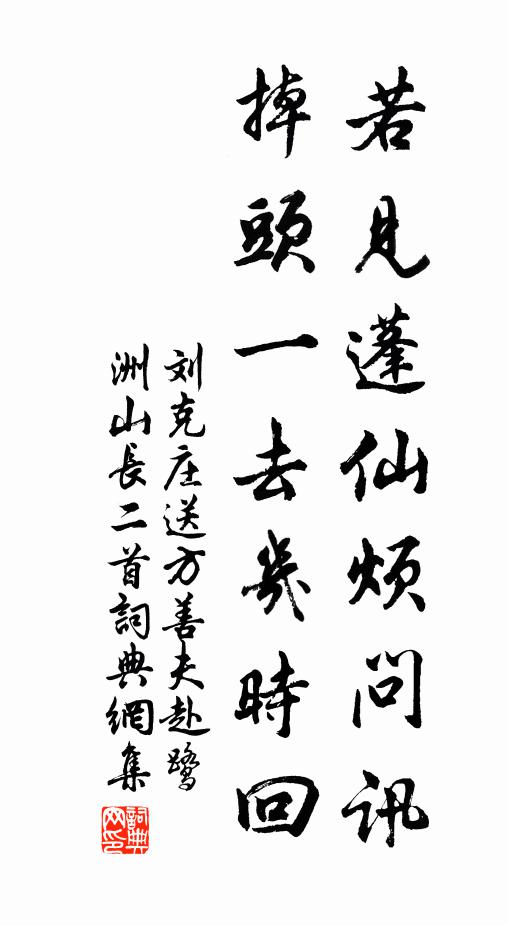 若見蓬仙煩問訊
掉頭一去幾時回
刘克庄送方善夫赴鹭
洲山長二首詞典網集
詞典
网印